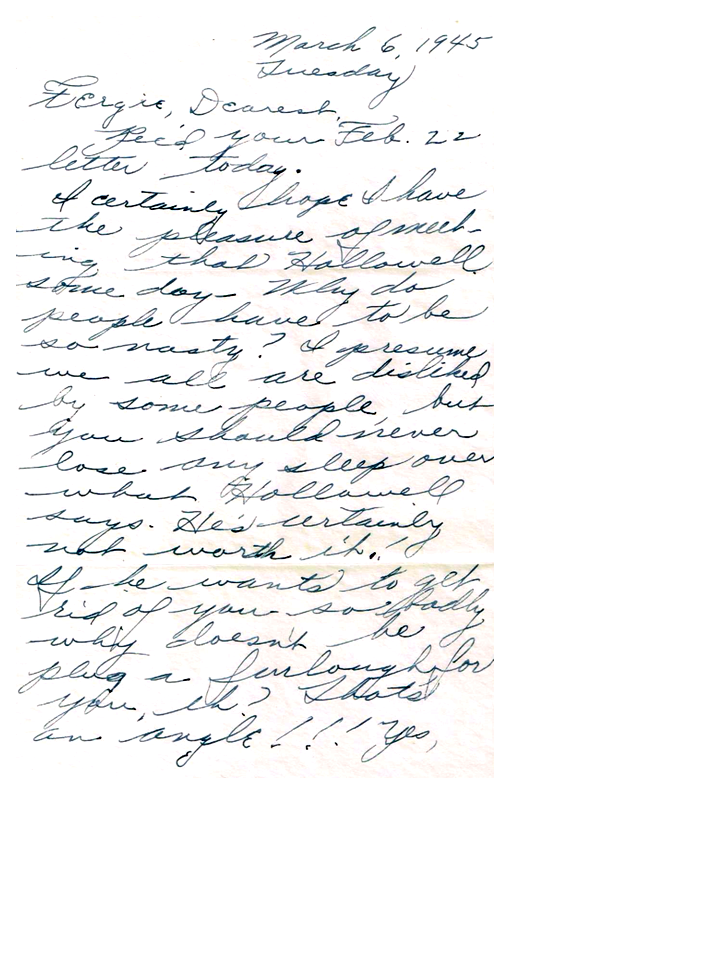 March 6, 1945
Tuesday
Fergie, Dearest,
Rec'd your Feb. 22
letter today.
I certainly hope I have
the pleasure of meet-
ing that Hallowell
some day - Why do
people have to be
so nasty? I presume
we all are disliked
by some people, but
you should never
lose any sleep over
what Hollowell
says. He's certainly
not worth it.!
If he wants to get
rid of you so badly
why doesn't he
plug a furlough for
you, eh? That's
an angle!!! Yes,